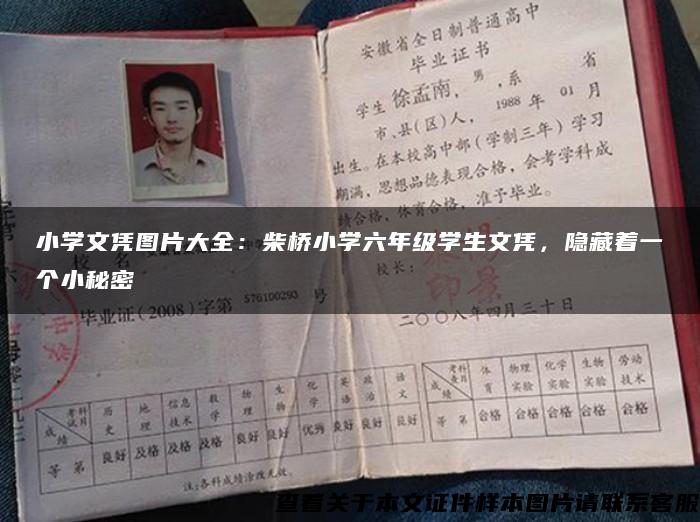 安徽省全日制普通高中
毕业证书
学生徐孟南，男，系 省
市、县(区)人，1988年01月
出生。在本校高中部(学制三年)学习
期满，思想品德表现合格，会考学科成
绩合格，体育合格，准予毕业。
小学文凭图片大全：柴桥小学六年级学生文凭，隐藏着一
个小秘密
校名
校长：
毕业证(2008)字第 576100293 号
二〇〇八年四月三十日
考试科目 历史 地理 信息技术 数学 物理 生物 化学 英语 政治 语文
成绩
等第 良好 及格 及格 及格 良好 良好 优秀 良好 良好 良好
注:各科成绩涂改无效。
考查科目 体育 物理实验 化学实验 生物实验 劳动技术
成绩
等第 合格 合格 合格 合格 合格
查看关于本文证件样本图片请联系客服